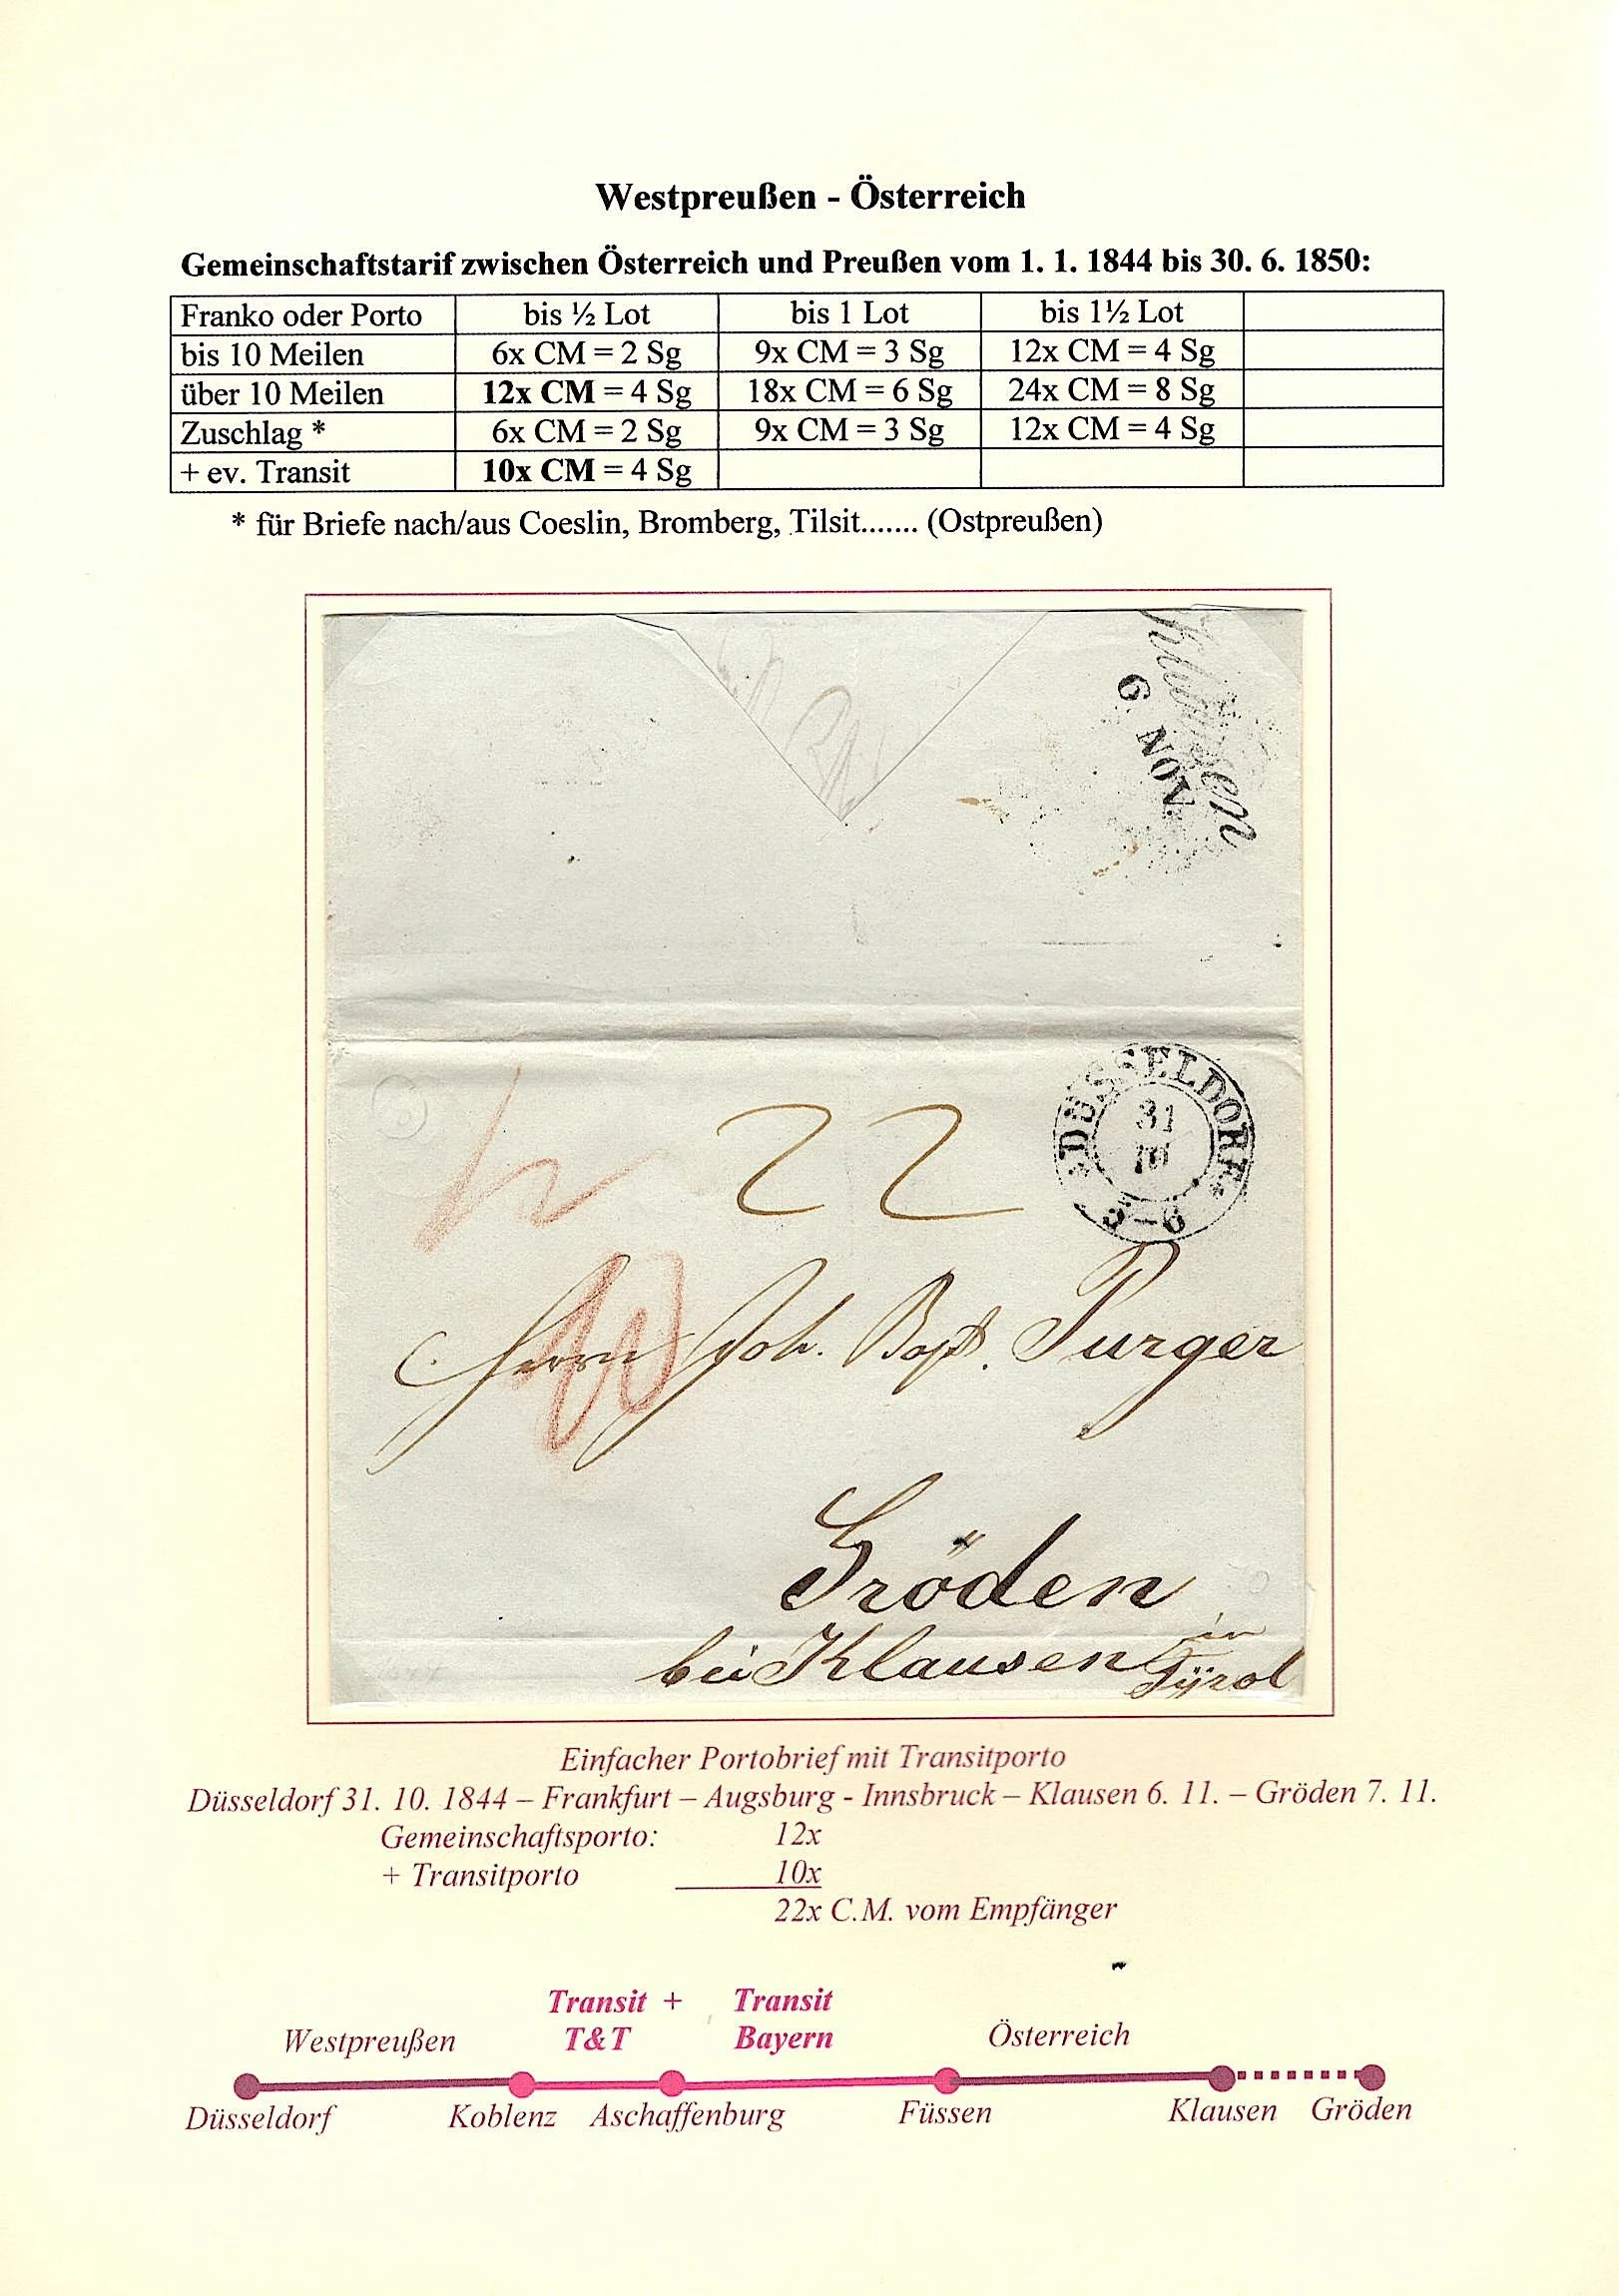 Westpreußen - Österreich
Gemeinschaftstarif zwischen Österreich und Preußen vom 1. 1. 1844 bis 30. 6. 1850:
Franko oder Porto bis ½ Lot bis 1 Lot bis 1½ Lot
bis 10 Meilen 6x CM = 2 Sg 9x CM = 3 Sg 12x CM = 4 Sg
über 10 Meilen 12x CM = 4 Sg 18x CM = 6 Sg 24x CM = 8 Sg
Zuschlag * 6x CM = 2 Sg 9x CM = 3 Sg 12x CM = 4 Sg
+ ev. Transit 10x CM = 4 Sg
* für Briefe nach/aus Coeslin, Bromberg, Tilsit....... (Ostpreußen)
6 NOV.
22
DÜSSELDORF
31
10
5-6
Herrn Joh. Bapt. Purger
Gröden
bei Klausen in
Tÿrol
Einfacher Portobrief mit Transitporto
Düsseldorf 31. 10. 1844 – Frankfurt – Augsburg - Innsbruck – Klausen 6. 11. – Gröden 7. 11.
Gemeinschaftsporto: 12x
+ Transitporto 10x
22x C.M. vom Empfänger
Transit + Transit
Westpreußen T&T Bayern Österreich
Düsseldorf Koblenz Aschaffenburg Füssen Klausen Gröden